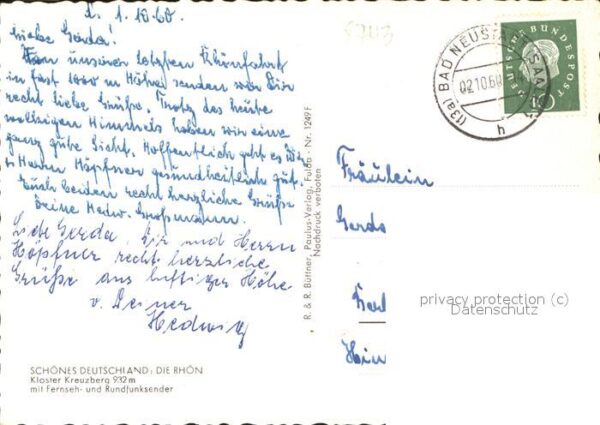 d. 1.10.60.
Liebe Gerda!
Von unserer letzten Rhönfahrt
in fast 1000 m Höhe senden wir Dir
recht liebe Grüße. Trotz des heute
wolkigen Himmels haben wir eine
ganz gute Sicht. Hoffentlich geht es Dir
u. Herrn Höpfner gesundheitlich gut.
Euch beiden recht herzliche Grüße
Deine Hedw. Großmann.
Liebe Gerda. Dir und Herrn
Höpfner recht herzliche
Grüße aus luftiger Höhe
v. Deiner
Hedwig
SCHÖNES DEUTSCHLAND: DIE RHÖN
Kloster Kreuzberg 932 m
mit Fernseh- und Rundfunksender
R. & R. Büttner, Paulus-Verlag, Fulda · Nr. 1249F
Nachdruck verboten
(13a) BAD NEUSTADT (SAALE)
02.10.60
h
DEUTSCHE BUNDESPOST
10
Fräulein
Gerda
privacy protection (c)
Datenschutz